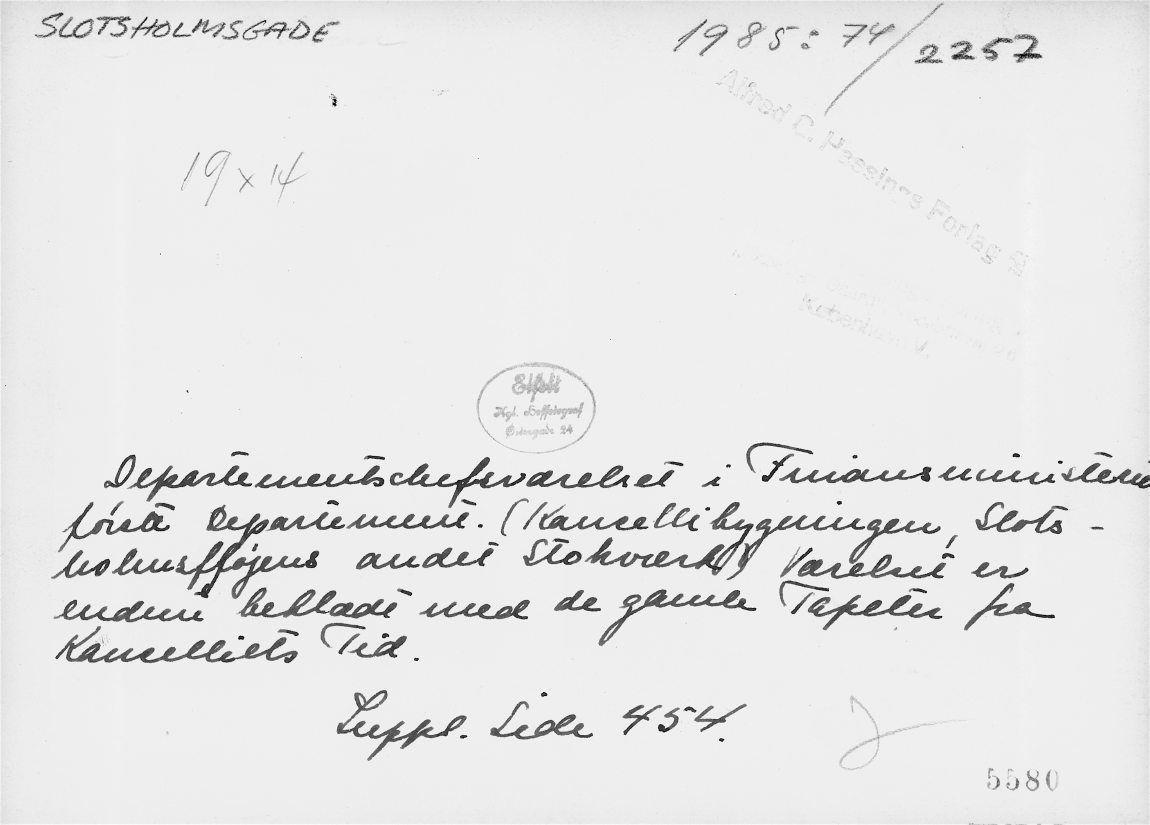 SLOTSHOLMSGADE
1985: 74/2257
19 x 14
Alfred G. Hassings Forlag
København V.
Elfelt
Kgl. Hoffotograf
Østergade 24
Departementschefsværelset i Finansministeriets
første Departement. (Kancellibygningen, Slots-
holmsfløjens andet Stokværk) Værelset er
endnu beklædt med de gamle Tapeter fra
Kancelliets Tid.
Suppl. Side 454.
5580